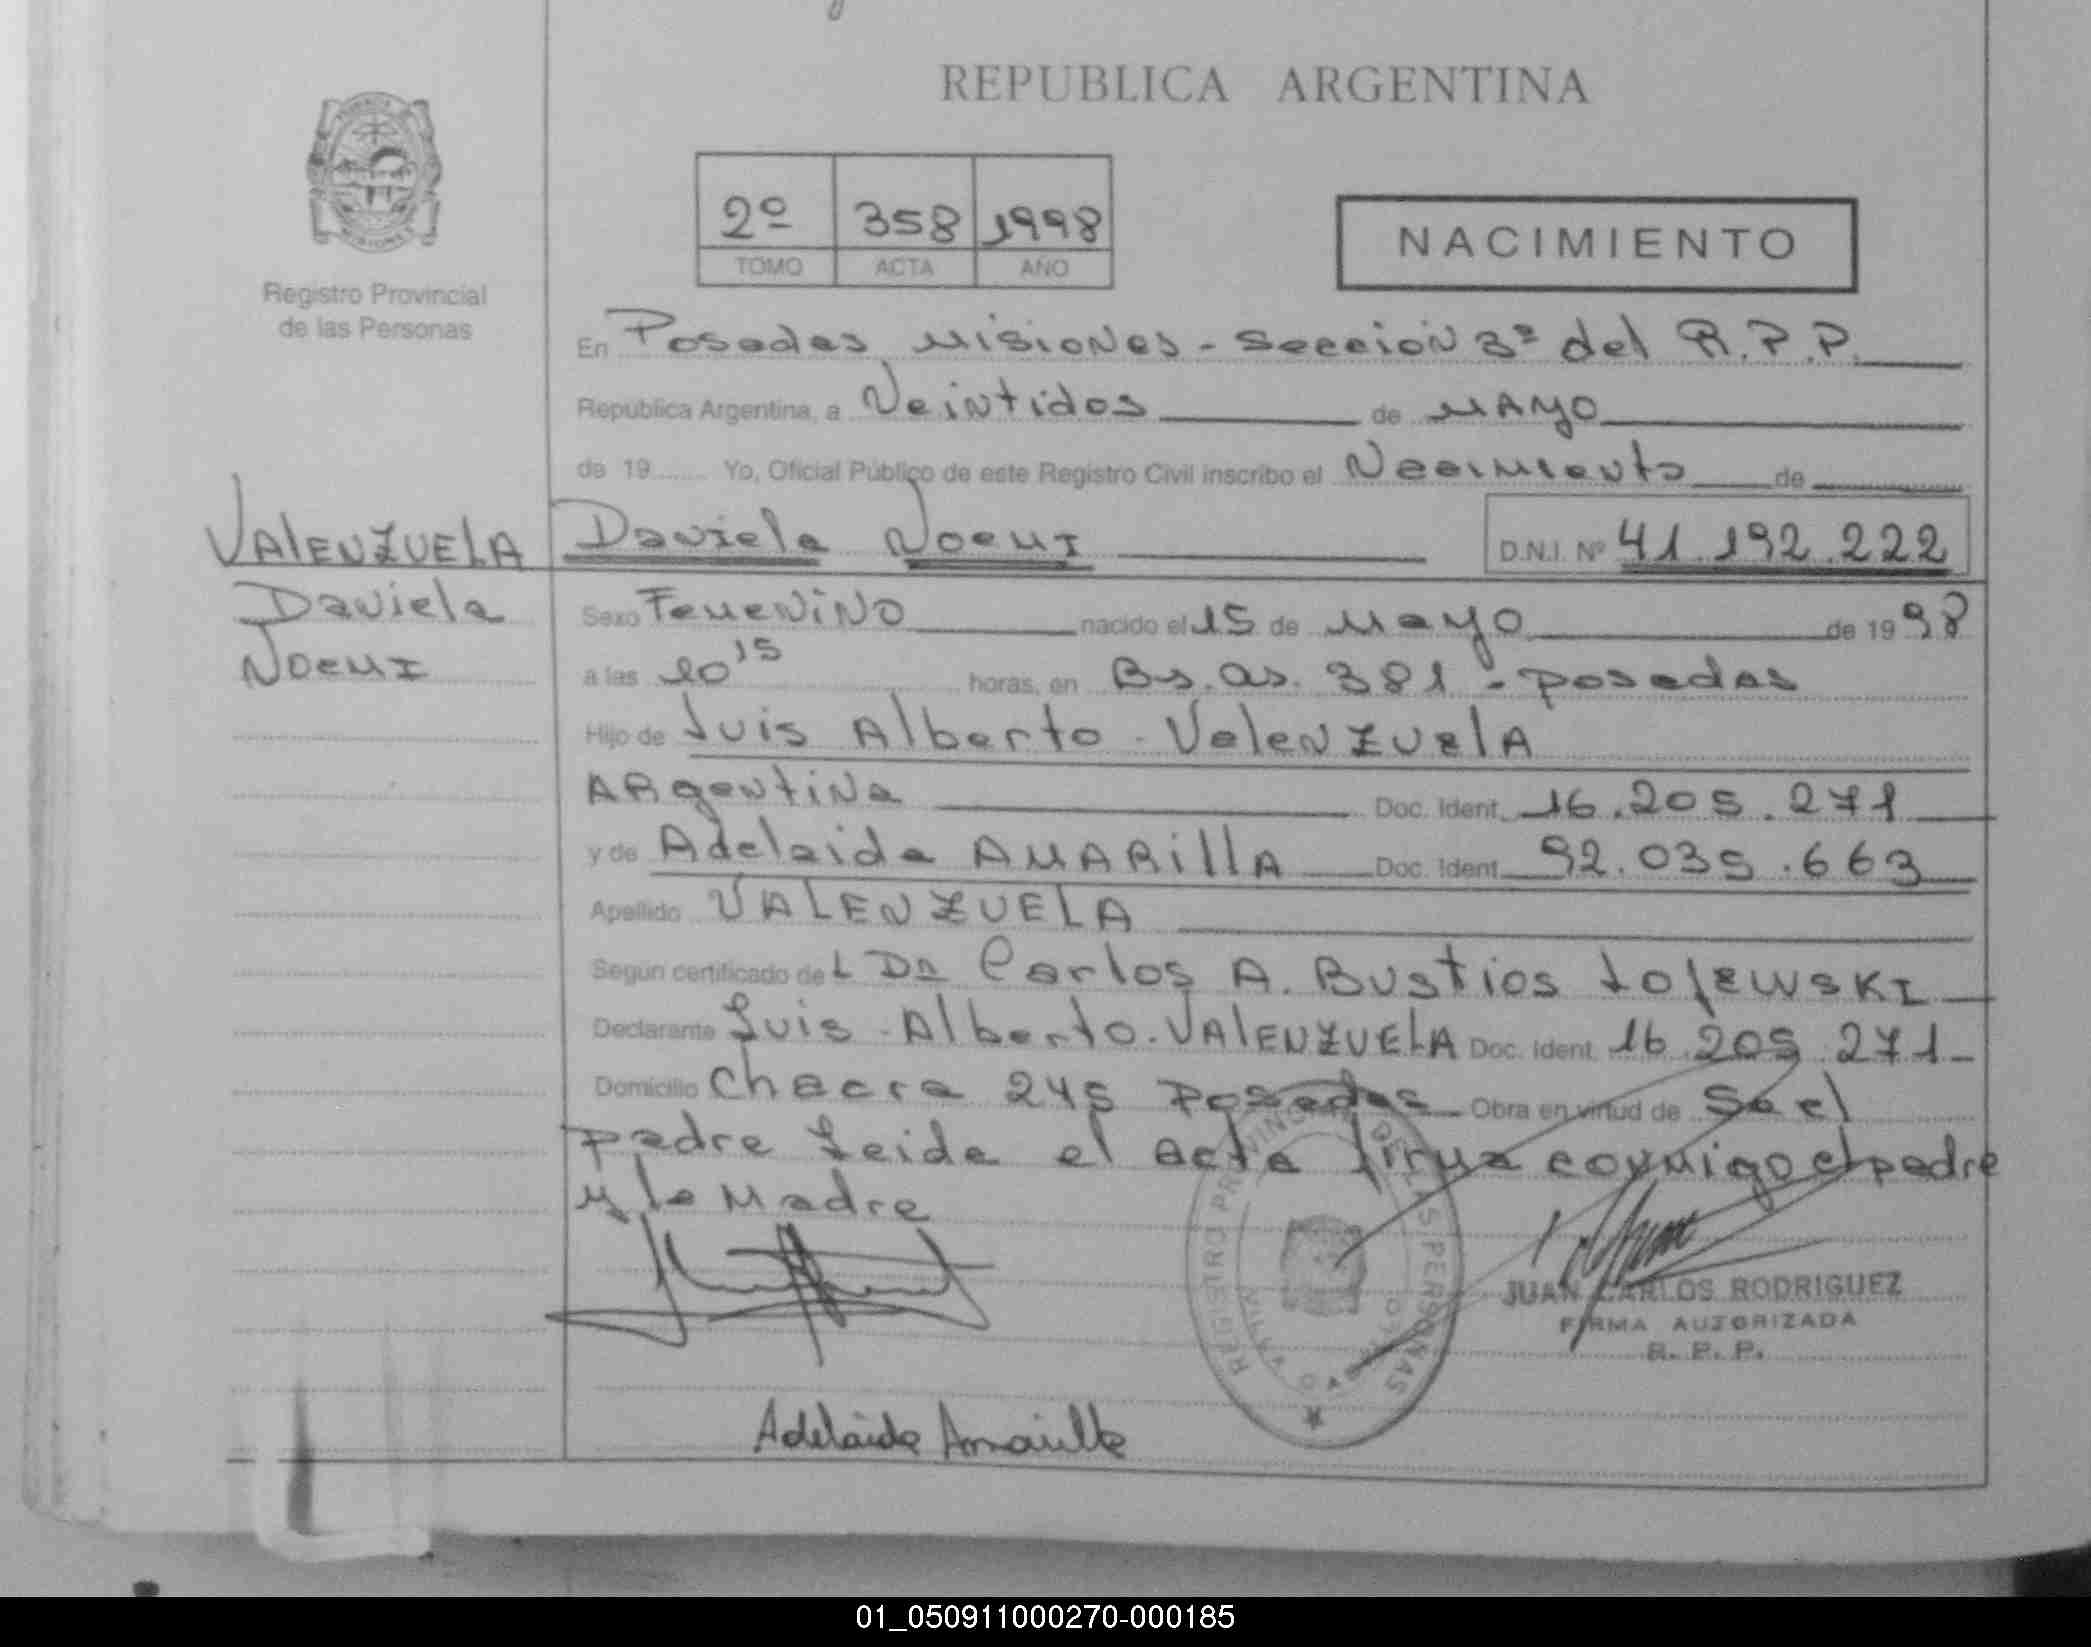 REPUBLICA ARGENTINA
2º 358 1998
TOMO ACTA AÑO
NACIMIENTO
Registro Provincial
de las Personas
En Posadas Misiones - Seccion 3ª del R.P.P.
Republica Argentina, a Veintidos de Mayo
de 19 Yo, Oficial Público de este Registro Civil inscribo el Nacimiento de
VALENZUELA Daniela Noemi D.N.I. Nº 41.192.222
Daniela
Noemi
Sexo Femenino nacido el 15 de Mayo de 1998
a las 20 15 horas, en Bs. As. 381 - Posadas
Hijo de Luis Alberto Valenzuela
Argentina Doc. Ident. 16.205.271
y de Adelaida AMARIllA Doc. Ident. 92.035.663
Apellido VALENZUELA
Según certificado de L DR Carlos A. Bustios
Declarante Luis Alberto VALENZUELA Doc. Ident. 16.205.271
Domicilio Chacra 245 Posadas Obra en virtud de Se el
padre Leida el acta firma conmigo el padre
y la Madre
REGISTRO PROVINCIAL DE LAS PERSONAS
JUAN CARLOS RODRIGUEZ
FIRMA AUTORIZADA
R. P. P.
Adelaida Amarilla
01_050911000270-000185